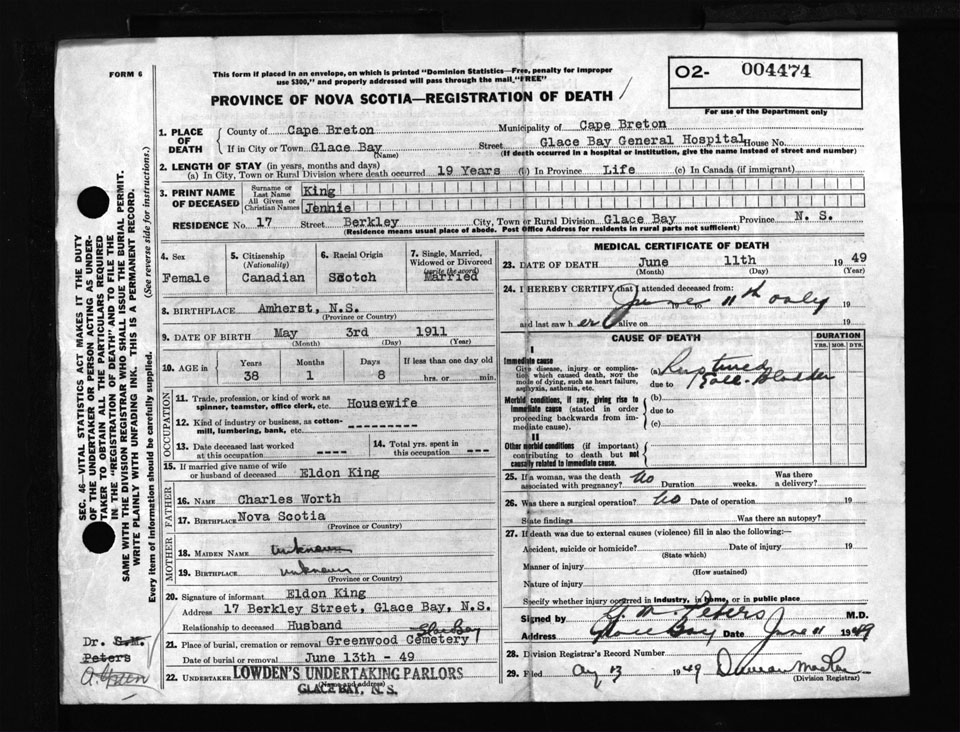 FORM 6
This form if placed in an envelope, on which is printed "Dominion Statistics—Free, penalty for improper
use $300," and properly addressed will pass through the mail "FREE"
O2- 004474
For use of the Department only
PROVINCE OF NOVA SCOTIA—REGISTRATION OF DEATH
SEC. 46 VITAL STATISTICS ACT MAKES IT THE DUTY
OF THE UNDERTAKER OR PERSON ACTING AS UNDER-
TAKER TO OBTAIN ALL THE PARTICULARS REQUIRED
IN THE "REGISTRATION OF DEATH" AND TO FILE THE
SAME WITH THE DIVISION REGISTRAR WHO SHALL ISSUE THE BURIAL PERMIT.
WRITE PLAINLY WITH UNFADING INK. THIS IS A PERMANENT RECORD.
Every item of information should be carefully supplied. (See reverse side for instructions.)
1. PLACE OF DEATH
County of Cape Breton Municipality of Cape Breton
If in City or Town Glace Bay Street Glace Bay General Hospital House No.
(Name) (If death occurred in a hospital or institution, give the name instead of street and number)
2. LENGTH OF STAY (in years, months and days)
(a) In City, Town or Rural Division where death occurred 19 Years (b) In Province Life (c) In Canada (if immigrant)
3. PRINT NAME OF DECEASED
Surname or Last Name King
All Given or Christian Names Jennie
RESIDENCE No. 17 Street Berkley City, Town or Rural Division Glace Bay Province N. S.
(Residence means usual place of abode. Post Office Address for residents in rural parts not sufficient)
4. Sex
Female
5. Citizenship
(Nationality)
Canadian
6. Racial Origin
Scotch
7. Single, Married,
Widowed or Divorced
(write the word)
Married
8. BIRTHPLACE Amherst, N.S.
(Province or Country)
9. DATE OF BIRTH May 3rd 1911
(Month) (Day) (Year)
10. AGE in
Years Months Days If less than one day old
38 1 8 hrs. or min.
OCCUPATION
11. Trade, profession, or kind of work as
spinner, teamster, office clerk, etc. Housewife
12. Kind of industry or business, as cotton-
mill, lumbering, bank, etc.
13. Date deceased last worked
at this occupation
14. Total yrs. spent in
this occupation
15. If married give name of wife
or husband of deceased Eldon King
FATHER
16. NAME Charles Worth
17. BIRTHPLACE Nova Scotia
(Province or Country)
MOTHER
18. MAIDEN NAME unknown
19. BIRTHPLACE unknown
(Province or Country)
20. Signature of informant Eldon King
Address 17 Berkley Street, Glace Bay, N.S.
Relationship to deceased Husband
Glace Bay
21. Place of burial, cremation or removal Greenwood Cemetery
Date of burial or removal June 13th - 49
22. UNDERTAKER LOWDEN'S UNDERTAKING PARLORS
(Name and address)
GLACE BAY, N. S.
Dr. S.M.
Peters
MEDICAL CERTIFICATE OF DEATH
23. DATE OF DEATH June 11th 1949
(Month) (Day) (Year)
24. I HEREBY CERTIFY that I attended deceased from:
June 11th only 19 to 19
and last saw h er alive on 19
CAUSE OF DEATH
DURATION
YRS. MOS. DYS.
I
Immediate cause
Give disease, injury or complica-
tion which caused death, NOT the
mode of dying, such as heart failure,
asphyxia, asthenia, etc.
(a) Ruptured
due to Gall-bladder
Morbid conditions, if any, giving rise to
immediate cause (stated in order
proceeding backwards from im-
mediate cause).
(b)
due to
(c)
II
Other morbid conditions (if important)
contributing to death but not
causally related to immediate cause.
25. If a woman, was the death
associated with pregnancy? No Duration weeks. Was there
a delivery?
26. Was there a surgical operation? No Date of operation 19
State findings Was there an autopsy?
27. If death was due to external causes (violence) fill in also the following:—
Accident, suicide or homicide? Date of injury 19
(State which)
Manner of injury
(How sustained)
Nature of injury
Specify whether injury occurred in industry, in home, or in public place
Signed by M. Peters M.D.
Address Glace Bay Date June 11 1949
28. Division Registrar's Record Number
29. Filed 13 1949
(Division Registrar)